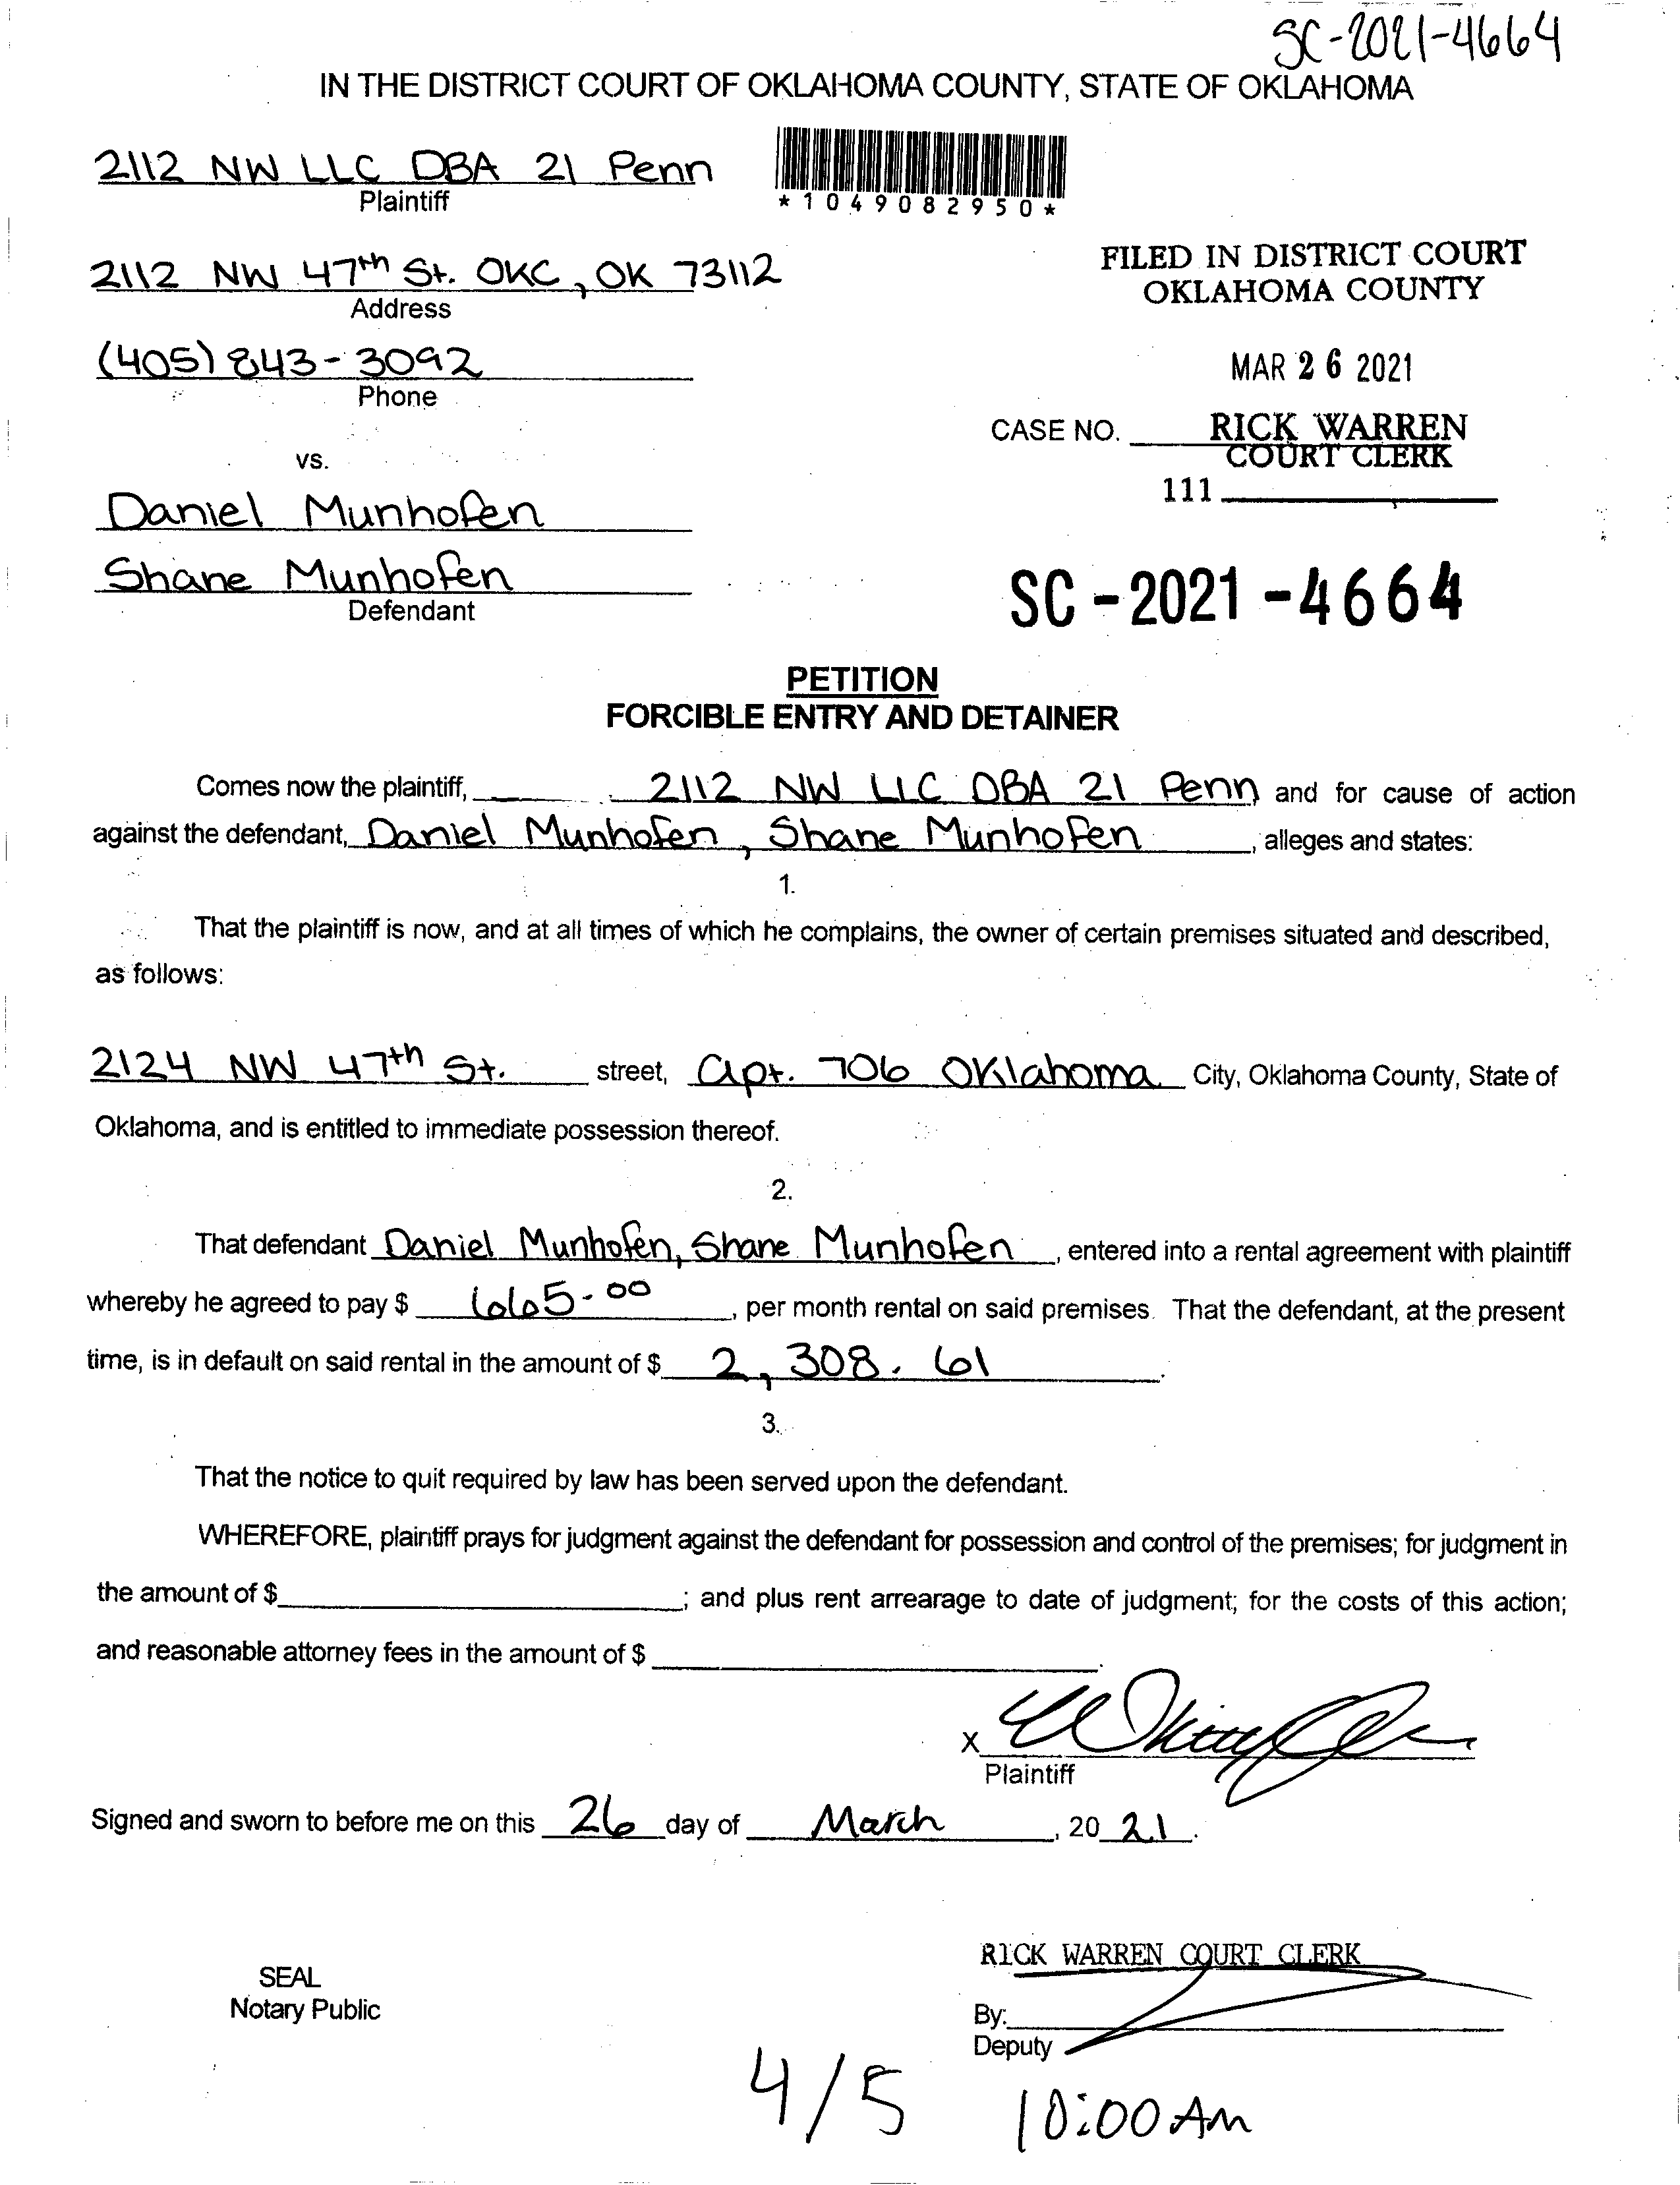 SC-2021-4664
IN THE DISTRICT COURT OF OKLAHOMA COUNTY, STATE OF OKLAHOMA
2112 NW LLC DBA 21 Penn
Plaintiff
*1049082950*
2112 NW 47th St. OKC, OK 73112
Address
FILED IN DISTRICT COURT
OKLAHOMA COUNTY
(405) 843-3092
Phone
MAR 26 2021
CASE NO. RICK WARREN
COURT CLERK
vs.
111
Daniel Munhofen
Shane Munhofen
Defendant
SC-2021-4664
PETITION
FORCIBLE ENTRY AND DETAINER
Comes now the plaintiff, 2112 NW LLC DBA 21 Penn and for cause of action
against the defendant, Daniel Munhofen, Shane Munhofen, alleges and states:
1.
That the plaintiff is now, and at all times of which he complains, the owner of certain premises situated and described,
as follows:
2124 NW 47th St. street, Apt. 706 Oklahoma City, Oklahoma County, State of
Oklahoma, and is entitled to immediate possession thereof.
2.
That defendant Daniel Munhofen, Shane Munhofen, entered into a rental agreement with plaintiff
whereby he agreed to pay $ 665.00, per month rental on said premises. That the defendant, at the present
time, is in default on said rental in the amount of $ 2,308.61.
3.
That the notice to quit required by law has been served upon the defendant.
WHEREFORE, plaintiff prays for judgment against the defendant for possession and control of the premises; for judgment in
the amount of $; and plus rent arrearage to date of judgment; for the costs of this action;
and reasonable attorney fees in the amount of $.
X
Plaintiff
Signed and sworn to before me on this 26 day of March, 2021.
RICK WARREN COURT CLERK
SEAL
Notary Public
By:
Deputy
4/5 10:00 AM